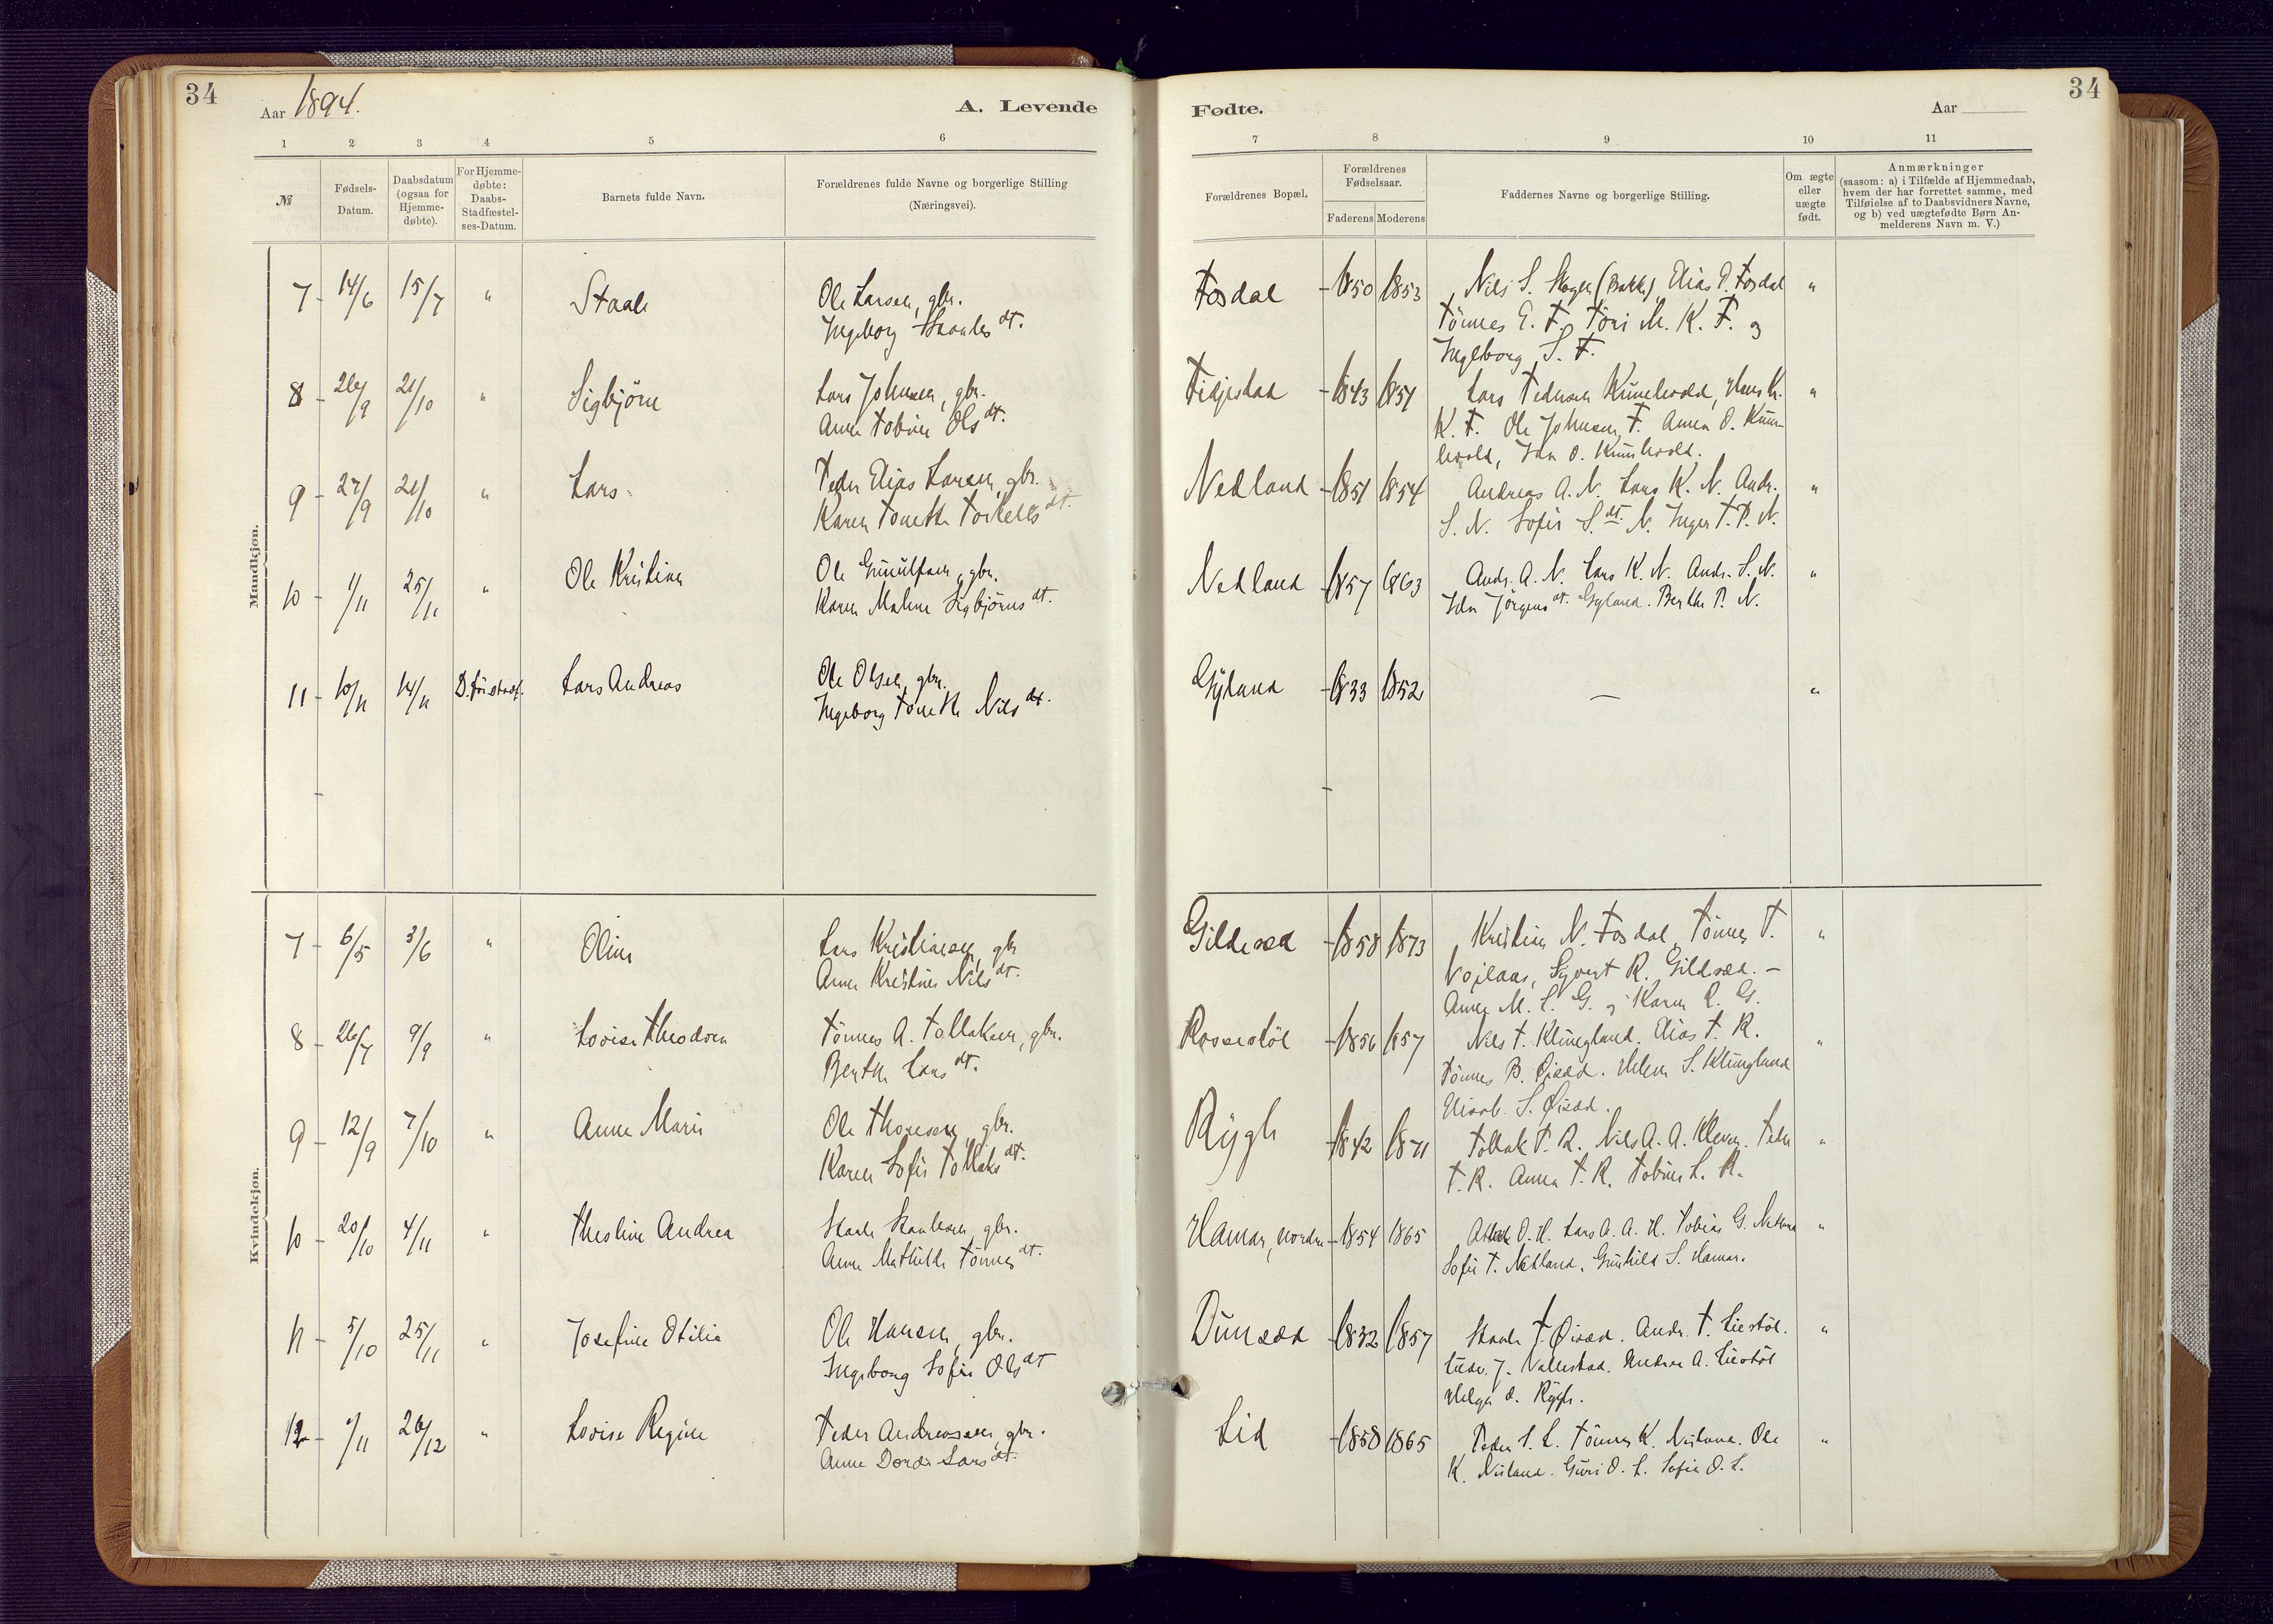 34
Aar 1894.
A. Levende
Fødte.
Aar
34
1 2 3 4 5 6
7 8 9 10 11
№
Fødsels-Datum.
Daabsdatum (ogsaa for Hjemme-døbte).
For Hjemme-døbte: Daabs-Stadfæstel-ses-Datum.
Barnets fulde Navn.
Forældrenes fulde Navne og borgerlige Stilling
(Næringsvei).
Forældrenes Bopæl.
Forældrenes Fødselsaar.
Faderens Moderens
Faddernes Navne og borgerlige Stilling.
Om ægte eller uægte født.
Anmærkninger
(saasom: a) i Tilfælde af Hjemmedaab,
hvem der har forrettet samme, med
Tilføielse af to Daabsvidners Navne,
og b) ved uægtefødte Børn An-
melderens Navn m. V.)
Mandkjøn.
7 - 14/6 15/7 " Staale Ole Larsen, gbr. Fosdal - 1850 1853 Nils S. (Bakke) Elias P. Fosdal "
Ingeborg Staales dt. Tönnes E. F. Töri M. K. F. og
Ingeborg S. F.
8 - 26/9 21/10 " Sigbjörn Lars Johnsen, gbr. Fidjestad - 1843 1851 Lars Pedersen Kumlevold, Hans K. "
Anne Tobine Ols dt. K. F. Ole Johnsen F. Anna O. Kum-
levold, Ida O. Kumlevold.
9 - 27/9 21/10 " Lars Peder Elias Larsen, gbr. Nedland - 1851 1854 Andreas A. N. Lars K. N. Andr. "
Karen Tonette Torkels dt. S. N. Sofie S. dt. N. Inger T. P. N.
10 - 1/11 25/11 " Ole Kristian Ole Gunulfsen, gbr. Nedland - 1857 1863 Andr. A. N. Lars K. N. Andr. S. N. "
Karen Malene Sigbjörns dt. Ida Jörgens dt. Gyland. Berthe P. N.
11 - 10/11 14/11 D. för stadf. Lars Andreas Ole Olsen, gbr. Gyland - 1833 1852 — "
Ingeborg Tonette Nils dt.
Kvindekjøn.
7 - 6/5 3/6 " Oline Lars Kristiansen, gbr Gildesæd - 1858 1873 Kristian N. Fosdal, Tönnes T. "
Anne Kristine Nils dt. Vojlaas, Syvert R. Gildsæd. -
Anne M. L. G. og Karen R. G.
8 - 26/7 9/9 " Lovise Theodora Tönnes A. Tollaksen, gbr. Rossestöl - 1856 1857 Nils T. Klungland. Elias T. R. "
Berthe Lars dt. Tönnes B. Öisæd. Helene S. Klungland
Elisab. S. Öisæd.
9 - 12/9 7/10 " Anne Marie Ole Thomesen, gbr. Rygh - 1842 1871 Tollak T. R. Nils A. A. Kleven. Peder "
Karen Sofie Tollaks dt. T. R. Anna T. R. Tobine L. R.
10 - 20/10 4/11 " Theoline Andrea Staale Staalesen, gbr. Hamar, nordre - 1854 1865 Atlak O. H. Lars A. A. H. Tobias G. Nedland "
Anne Mathilde Tönnes dt. Sofie T. Nedland. Gunhild S. Hamar.
11 - 5/10 25/11 " Josefine Otilia Ole Hansen, gbr. Dunsæd - 1832 1857 Staale T. Öisæd. Andr. T. Liestöl. "
Ingeborg Sofie Ols dt J. Vallestad. Andrea A. Liestöl
Helga O. Rygh.
12 - 1/11 26/12 " Lovise Regine Peder Andreassen, gbr. Lid - 1858 1865 Peder S. L. Tönnes K. Nuland. Ole "
Anne Dorthe Lars dt. K. Nuland. Guri O. L. Sofie O. L.